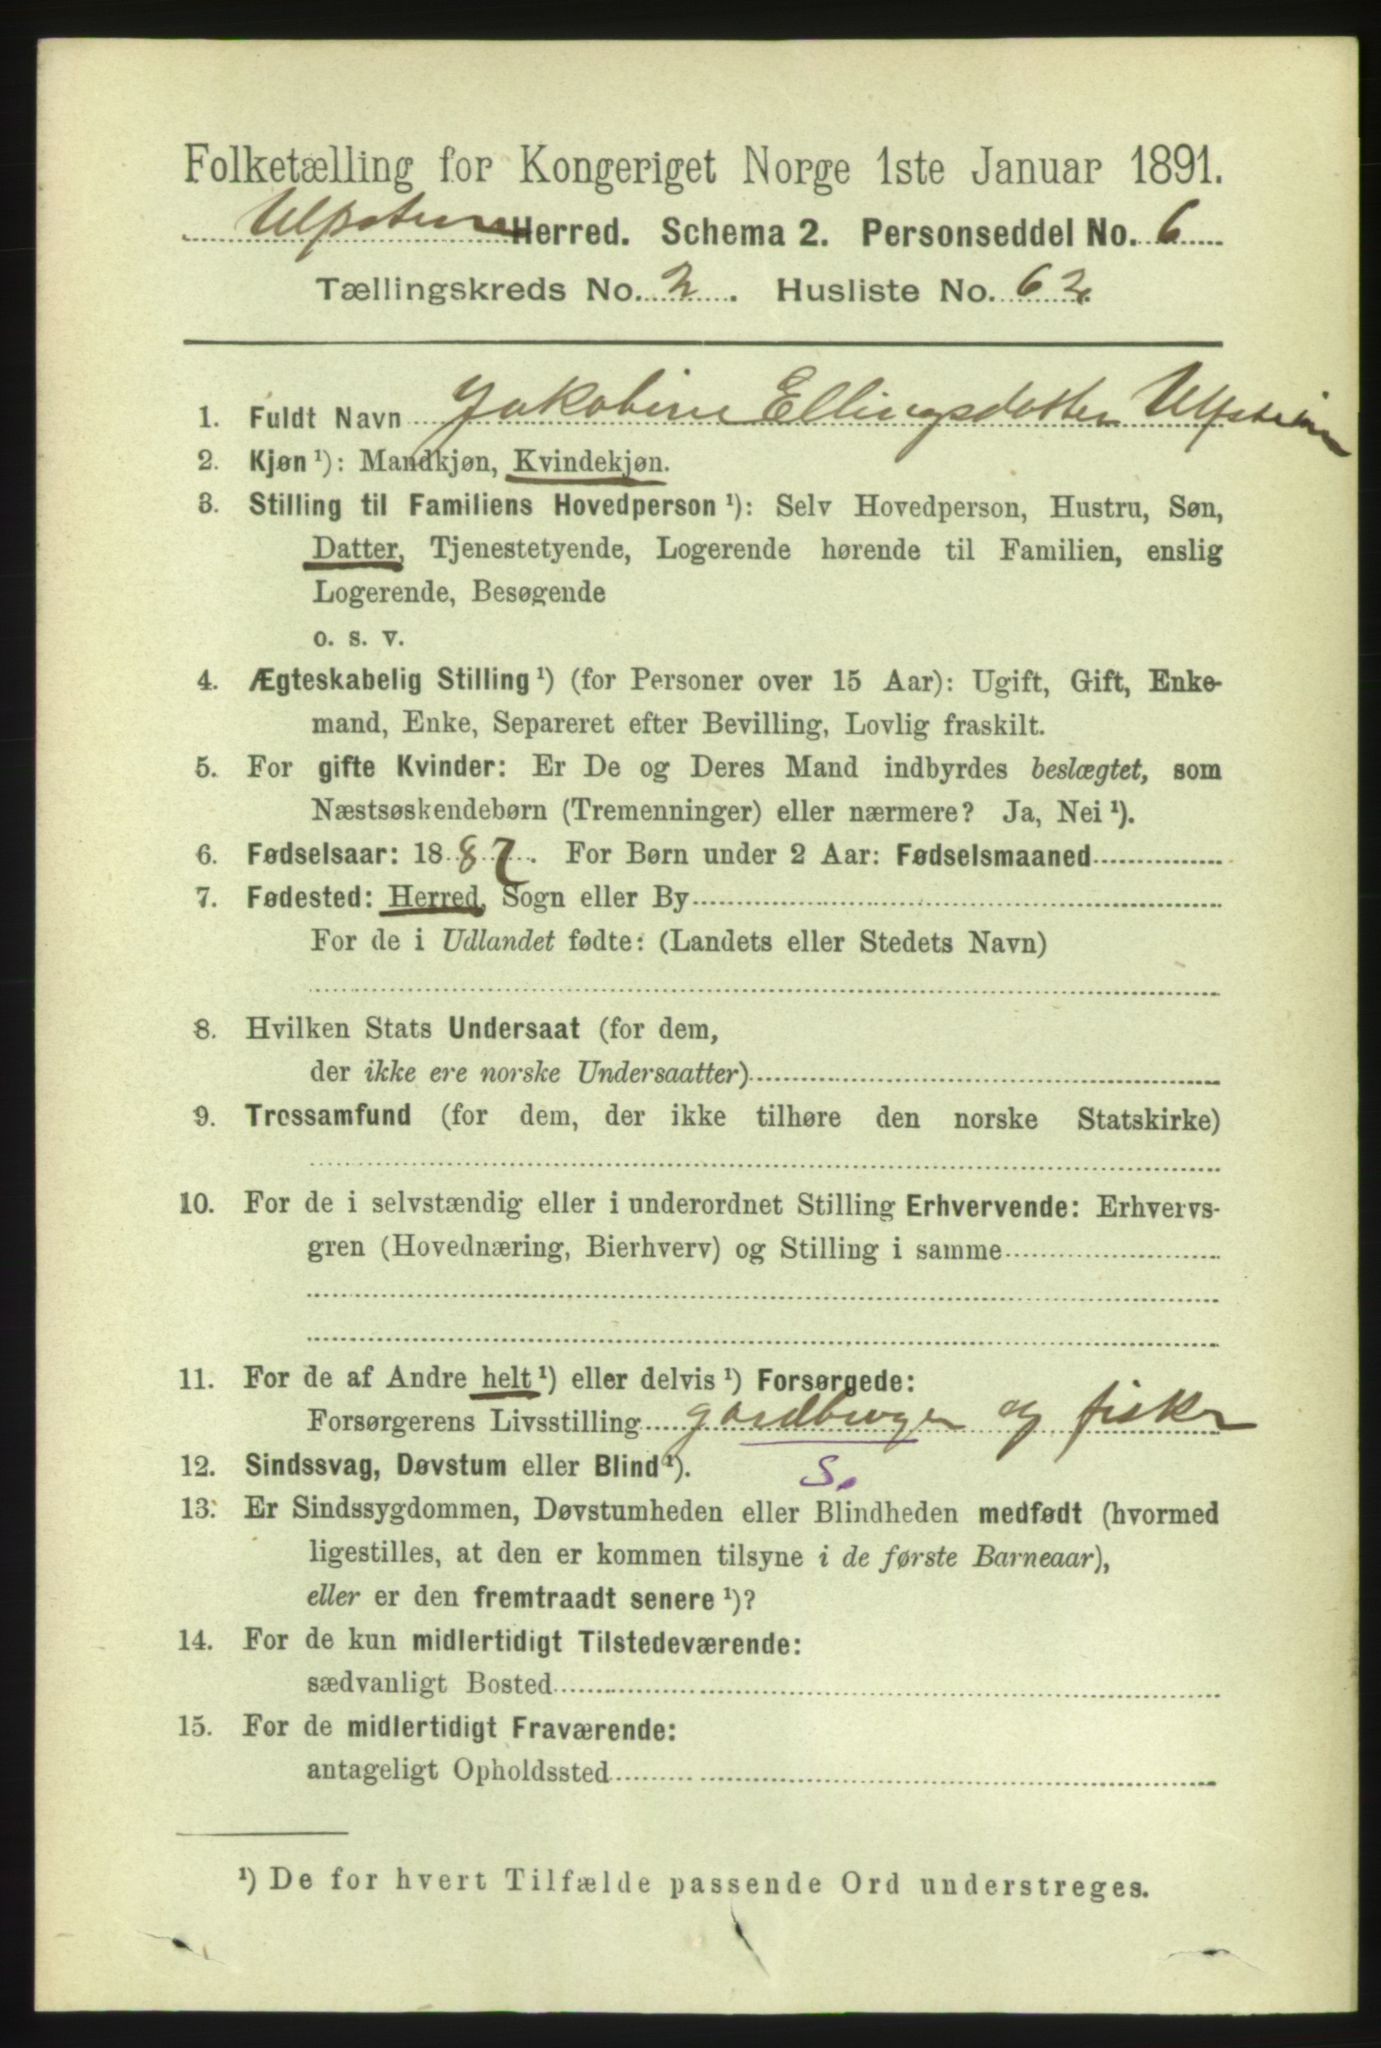 Folketælling for Kongeriget Norge 1ste Januar 1891.
Ulfsten Herred. Schema 2. Personseddel No. 6
Tællingskreds No. 2. Husliste No. 62.
1. Fuldt Navn Jakobine Ellingsdatter Ulfstein
2. Kjøn ¹): Mandkjøn, Kvindekjøn.
3. Stilling til Familiens Hovedperson ¹): Selv Hovedperson, Hustru, Søn,
Datter, Tjenestetyende, Logerende hørende til Familien, enslig
Logerende, Besøgende
o. s. v.
4. Ægteskabelig Stilling ¹) (for Personer over 15 Aar): Ugift, Gift, Enke-
mand, Enke, Separeret efter Bevilling, Lovlig fraskilt.
5. For gifte Kvinder: Er De og Deres Mand indbyrdes beslægtet, som
Næstsøskendebørn (Tremenninger) eller nærmere? Ja, Nei ¹).
6. Fødselsaar: 1887. For Børn under 2 Aar: Fødselsmaaned
7. Fødested: Herred, Sogn eller By
For de i Udlandet fødte: (Landets eller Stedets Navn)
8. Hvilken Stats Undersaat (for dem,
der ikke ere norske Undersaatter)
9. Trossamfund (for dem, der ikke tilhøre den norske Statskirke)
10. For de i selvstændig eller i underordnet Stilling Erhvervende: Erhvervs-
gren (Hovednæring, Bierhverv) og Stilling i samme
11. For de af Andre helt ¹) eller delvis ¹) Forsørgede:
Forsørgerens Livsstilling gardbruger og fisker
12. Sindssvag, Døvstum eller Blind ¹). S.
13. Er Sindssygdommen, Døvstumheden eller Blindheden medfødt (hvormed
ligestilles, at den er kommen tilsyne i de første Barneaar),
eller er den fremtraadt senere ¹)?
14. For de kun midlertidigt Tilstedeværende:
sædvanligt Bosted
15. For de midlertidigt Fraværende:
antageligt Opholdssted
¹) De for hvert Tilfælde passende Ord understreges.